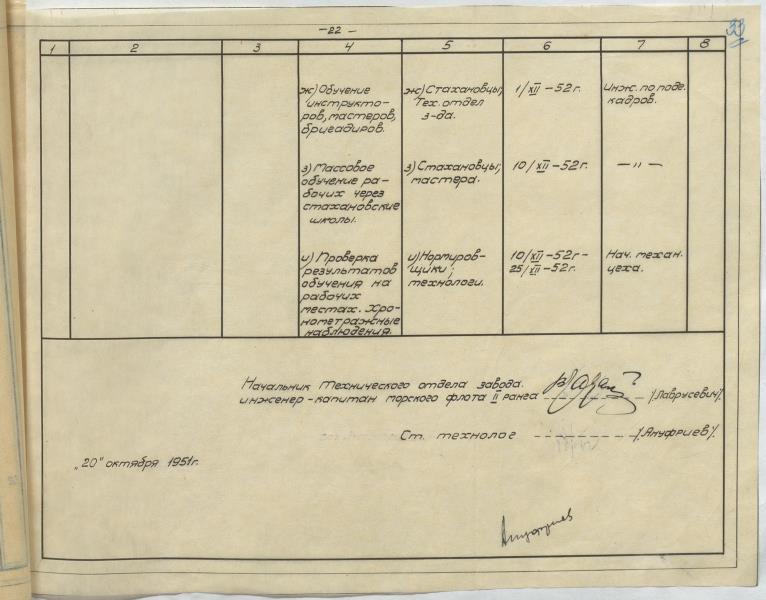 -22-
33
1 2 3 4 5 6 7 8
ж) Обучение
инструкто-
ров, мастеров,
бригадиров.
ж) Стахановцы,
Тех. отдел
з-да.
1/XII-52г.
Инж. по подг.
кадров.
з) Массовое
обучение ра-
бочих через
стахановские
школы.
з) Стахановцы,
мастера.
10/XII-52г.
— " —
и) Проверка
результатов
обучения на
рабочих
местах. Хро-
нометражные
наблюдения.
и) Нормиров-
щики,
технологи.
10/XII-52г-
25/XII-52г.
Нач. механ.
цеха.
Начальник Технического отдела завода.
инженер-капитан морского флота II ранга /Лаврусевич/.
Ст. технолог /Ануфриев/.
"20" октября 1951г.
Ануфриев